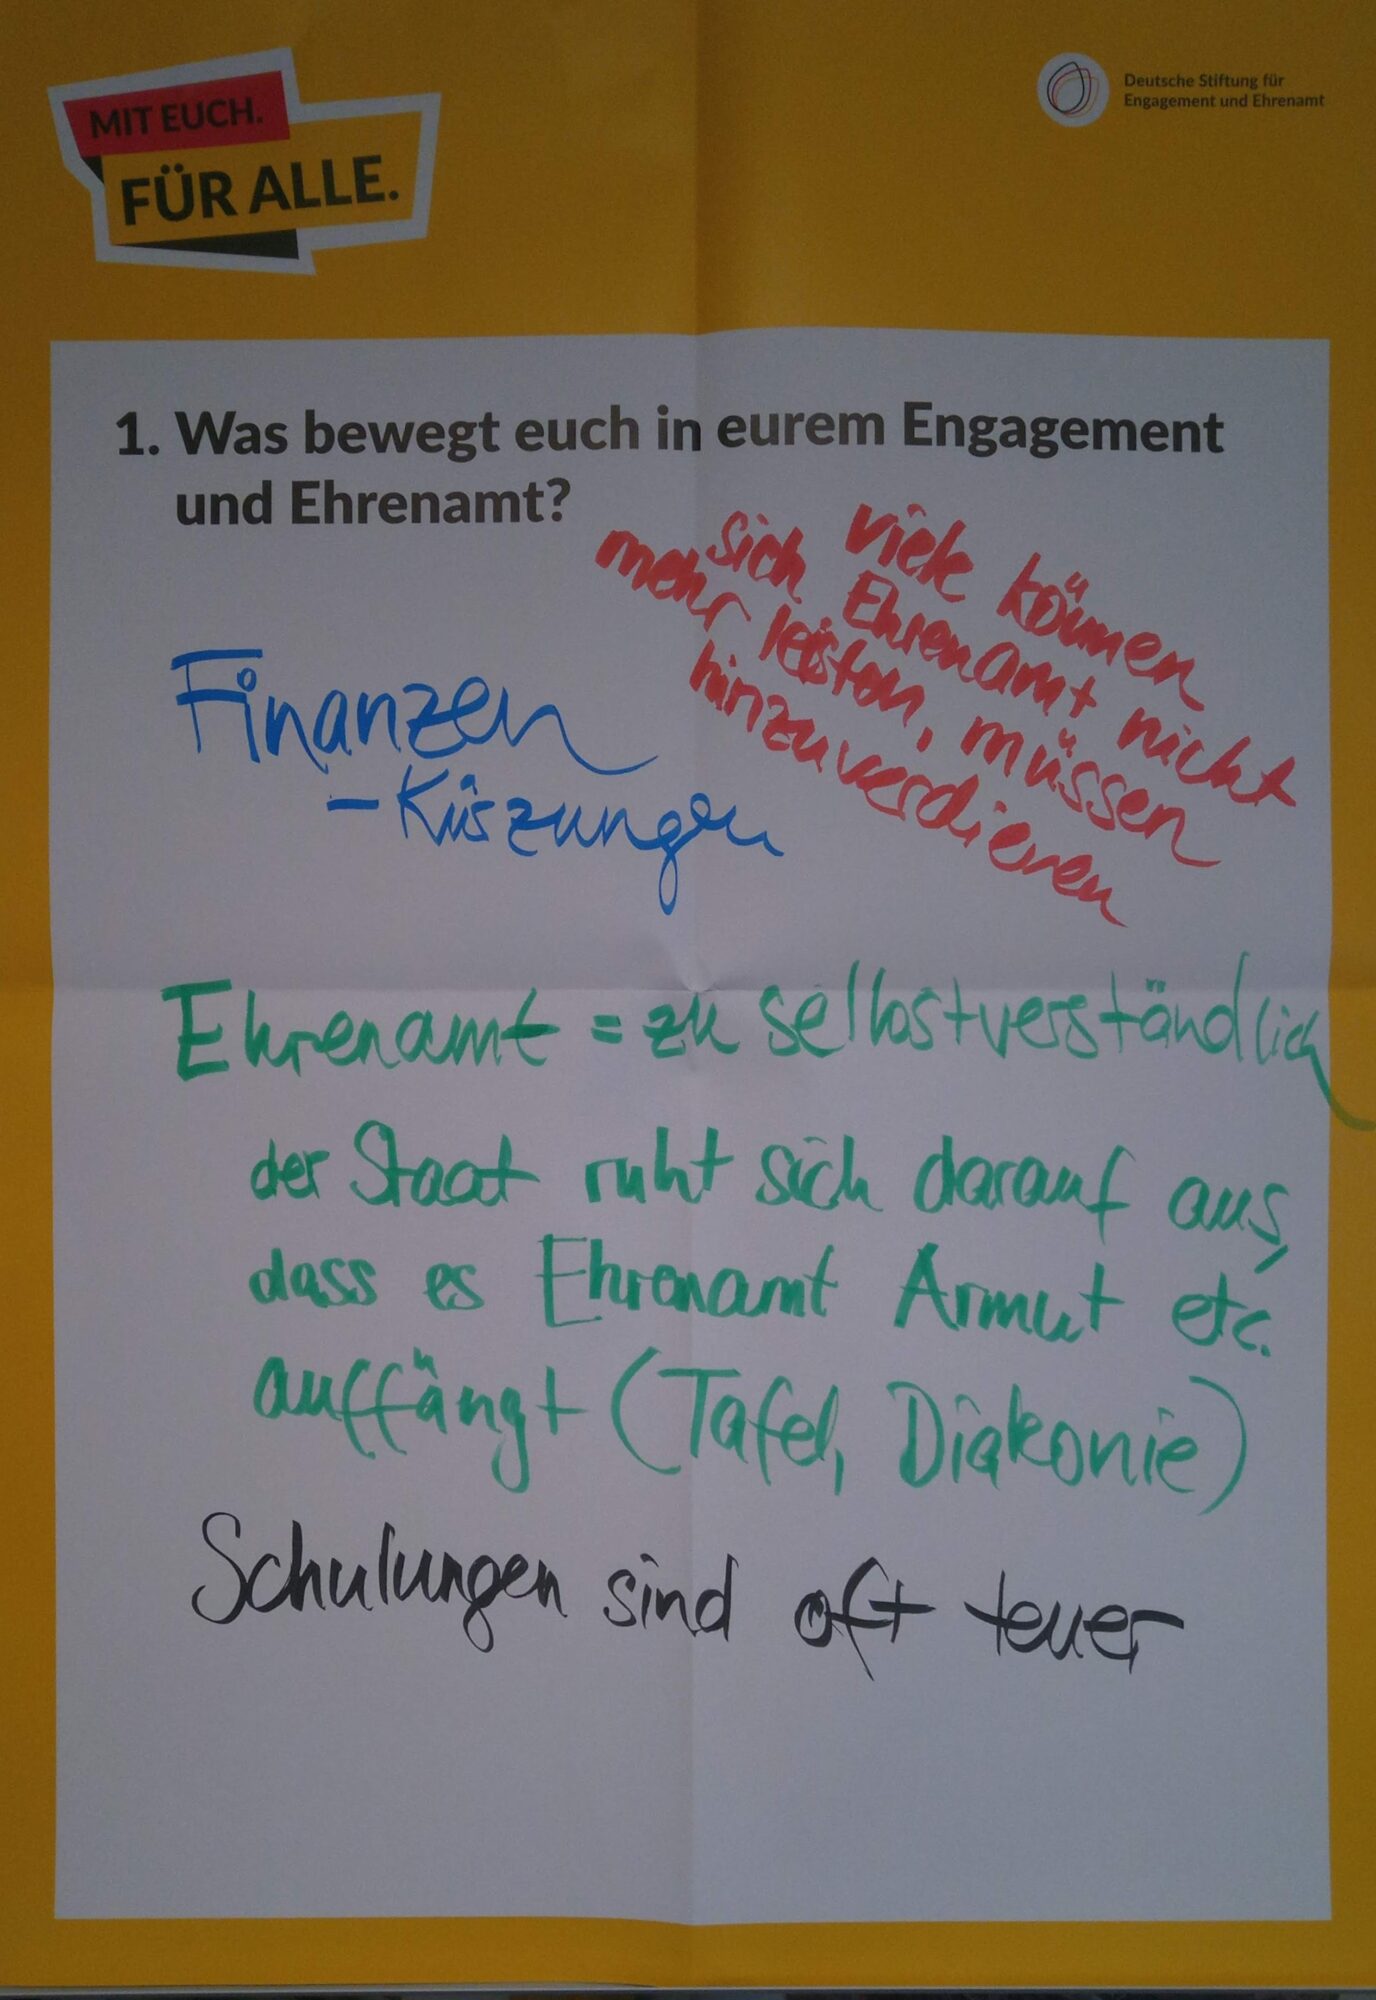 MIT EUCH.
FÜR ALLE.
Deutsche Stiftung für
Engagement und Ehrenamt
1. Was bewegt euch in eurem Engagement
und Ehrenamt?
viele können
sich Ehrenamt nicht
mehr leisten, müssen
hinzuverdienen
Finanzen
- Kürzungen
Ehrenamt = zu selbstverständlich
der Staat ruht sich darauf aus,
dass es Ehrenamt Armut etc.
auffängt (Tafel, Diakonie)
Schulungen sind oft teuer